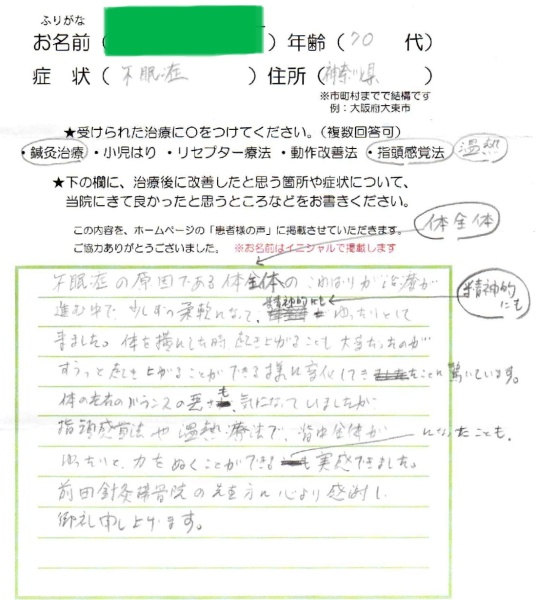 ふりがな
お名前（　　　　）年齢（70 代）
症　状（不眠症）住所（神奈川県）
※市町村までで結構です
例：大阪府大東市
★受けられた治療に〇をつけてください。（複数回答可）
・鍼灸治療・小児はり・リセプター療法・動作改善法・指頭感覚法 温熱
★下の欄に、治療後に改善したと思う箇所や症状について、
当院にきて良かったと思うところなどをお書きください。
この内容を、ホームページの「患者様の声」に掲載させていただきます。
ご協力ありがとうございました。　※お名前はイニシャルで掲載します
体全体
不眠症の原因である体全体のこわばりが治療が
進む中で少しずつ柔軟になって、精神的にもゆったりとして
精神的にも
きました。体を横にした時起き上がることも大変だったのが
すうっと起き上がることができる様に変化してきたことに驚いています。
体の左右のバランスの悪さも、気になっていましたが
指頭感覚法や温熱療法で、背中全体が
ゆったりと、力をぬくことができるになったことも、実感できました。
前田針灸接骨院の先生方に心より感謝し
御礼申し上げます。